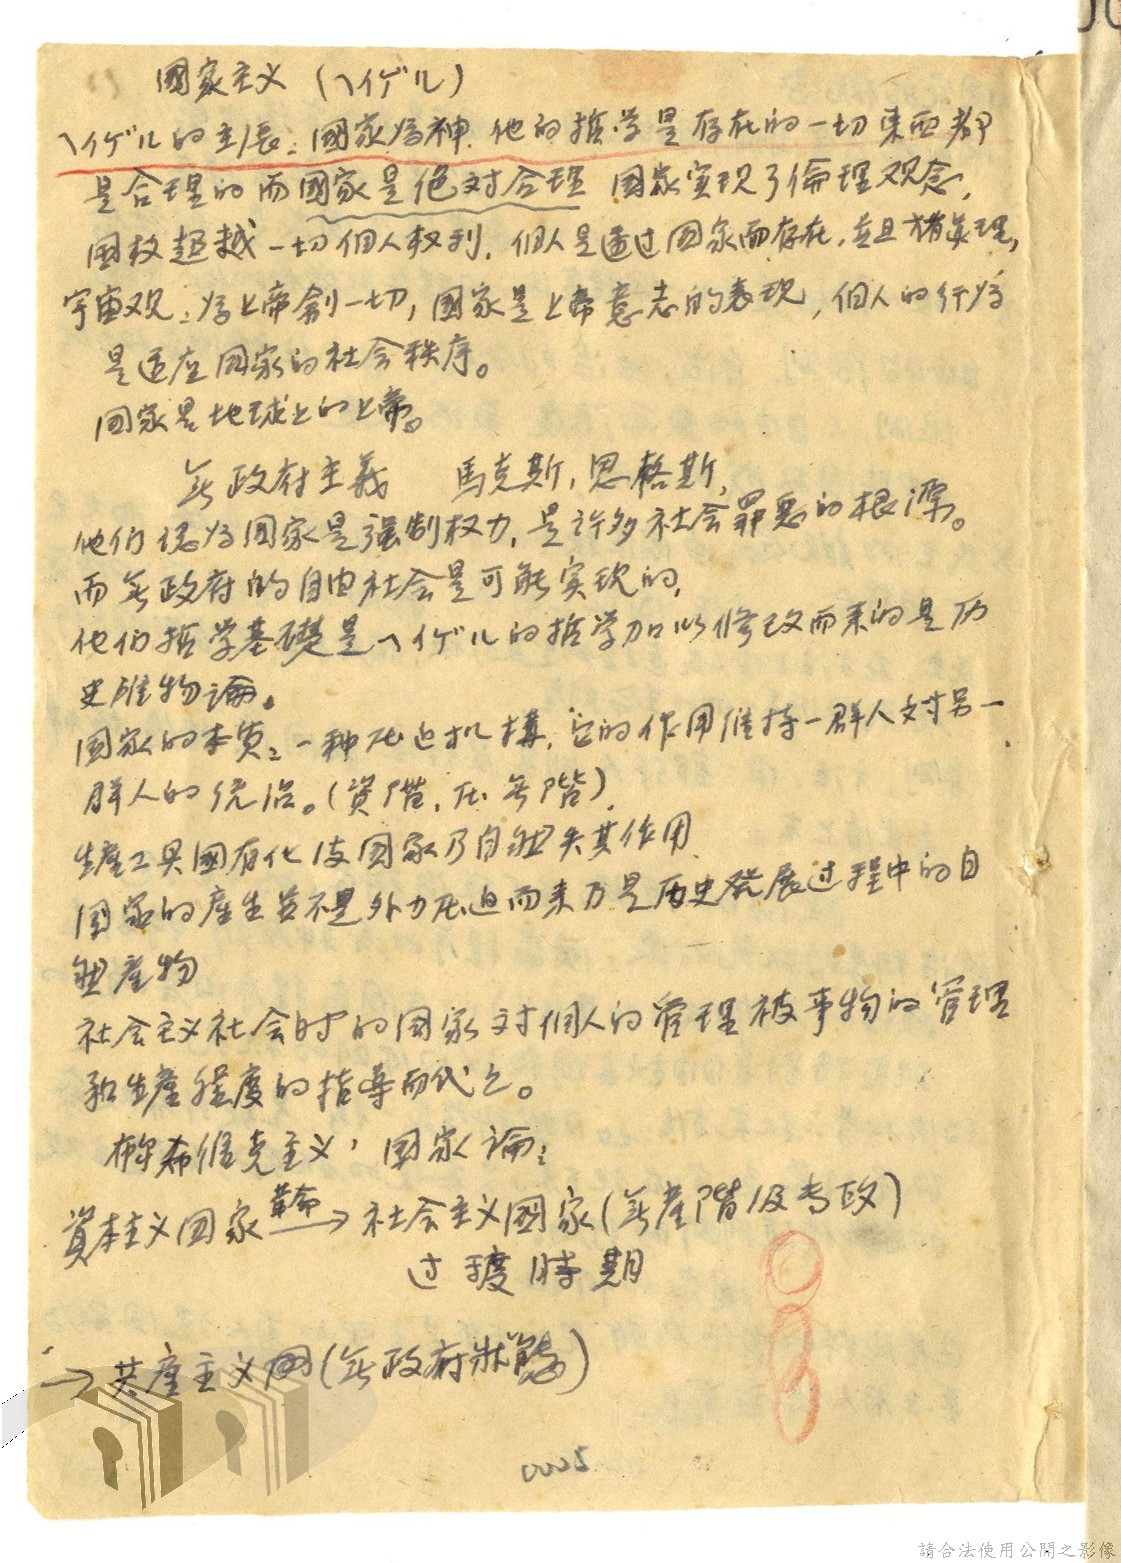 國家主义 (ヘイゲル)
ヘイゲル的主張：國家為神．他的哲学是存在的一切東西都
是合理的而國家是絶对合理 国家実现了倫理观念，
国权超越一切個人权利．個人是透过国家而存在，並且才有真理，
宇宙观：為上帝創一切，國家是上帝意志的表现，個人的行為
是适应国家的社会秩序。
国家是地球上的上帝。
無政府主義 馬克斯，恩格斯，
他们認為国家是强制权力，是許多社会罪惡的根源。
而無政府的自由社会是可能实现的，
他们哲学基礎是ヘイゲル的哲学加以修改而来的是历
史唯物論。
国家的本质：一种压迫机構，它的作用維持一群人对另一
群人的統治。(資階．压無階)．
生產工具國有化後国家乃自然失其作用
国家的產生並不是外力压迫而来乃是历史發展过程中的自
然產物
社会主义社会时的国家对個人的管理被事物的管理
和生產程度的指導而代之。
布尔希維克主义，国家論：
資本主义国家 革命→ 社会主义國家(無產階级专政)
过渡時期
→ 共產主义国(無政府狀態)
0025
請合法使用公開之影像